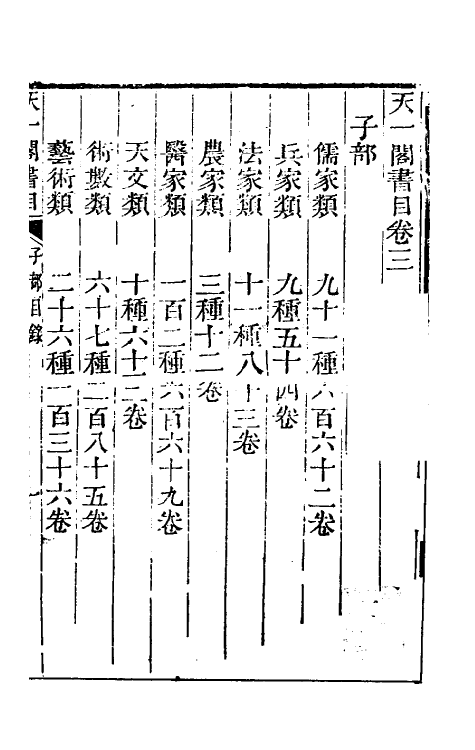 天一閣書目卷三
子部
儒家類 九十一種六百六十二卷
兵家類 九種五十四卷
法家類 十一種八十三卷
農家類 三種十二卷
醫家類 一百二種六百六十九卷
天文類 十種六十二卷
術數類 六十七種二百八十五卷
藝術類 二十六種一百三十六卷
天一閣書目 子部目錄 一